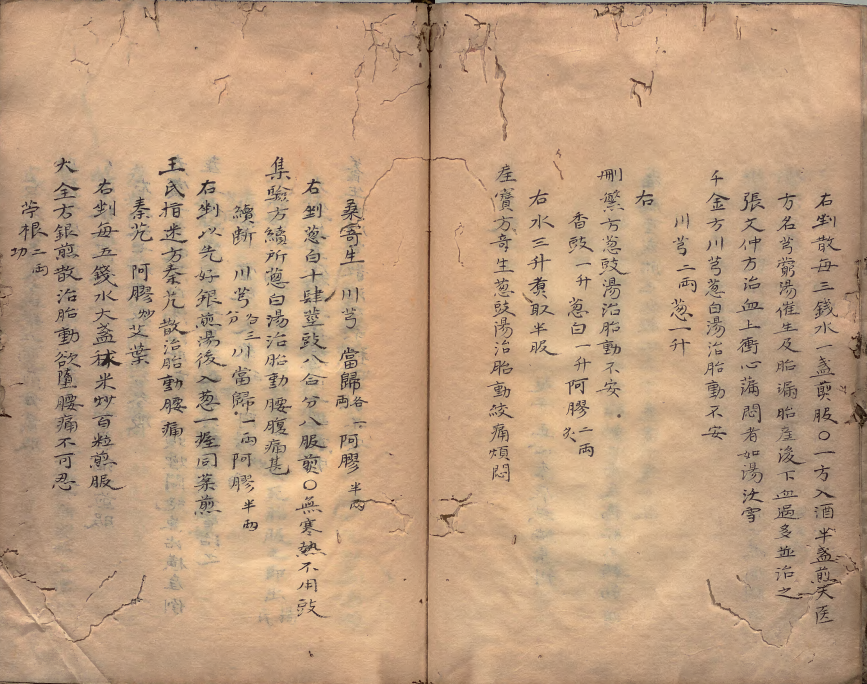 右剉散每三錢水一盏煎服〇一方入酒半盏煎天医
方名芎窮湯催生及胎漏胎产後下血過多並治之
張文仲方治血上衝心痛悶者如湯沃雪
千金方川芎葱白湯治胎動不安
川芎二兩葱一升
右
刪繁方葱豉湯治胎動不安
香豉一升葱白一升阿膠二兩炙
右水三升煮取半服
産寶方寄生葱豉陽治胎動絞痛煩悶
桑寄生 川芎 當歸各一兩 阿膠半兩
右剉葱白十肆莖豉八合分八服煎〇無寒熱不用豉
集驗方續所葱白湯治胎動腰腹痛甚
續断 川芎各三分 川當歸一兩 阿膠半兩
右剉以先好銀煎湯後入葱一握同葉煎
王氏指迷方秦艽散治胎動腰痛
秦艽 阿膠炒 艾葉
右剉每五錢水大盏秫米炒百粒煎服
大全方銀煎散治胎動欲墮腰痛不可忍
苧根二兩切